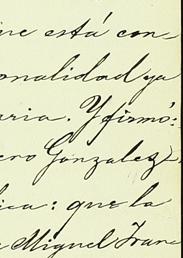 ue está con
onalidad ya
aria. Y firmó:
ero Gonzalez
ica: que la
Miguel Fran